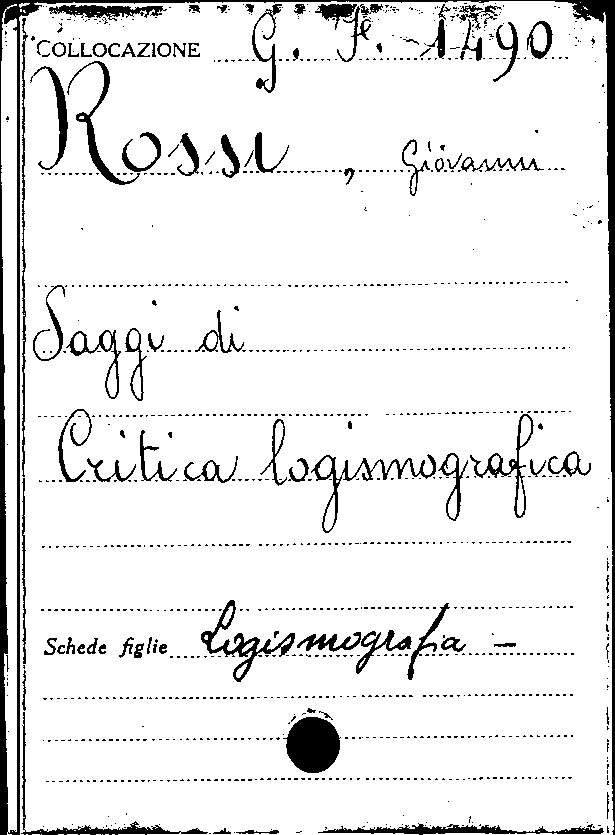 COLLOCAZIONE G. F. 1490
Rossi, Giovanni
Saggi di
Critica logismografica
Schede figlie Logismografia –